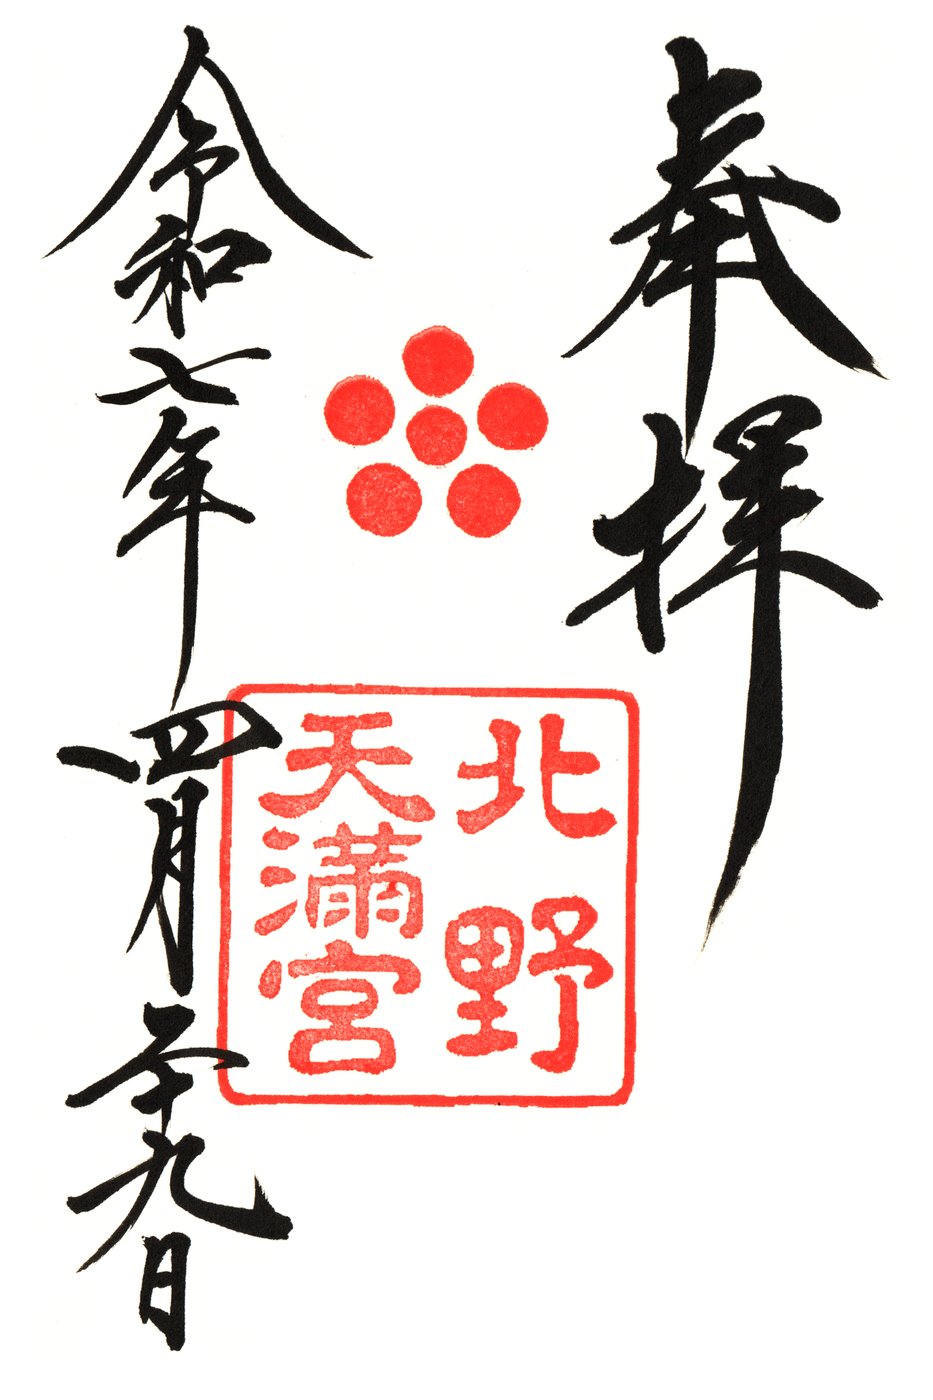 奉拝
北野
天満宮
令和七年四月二十九日